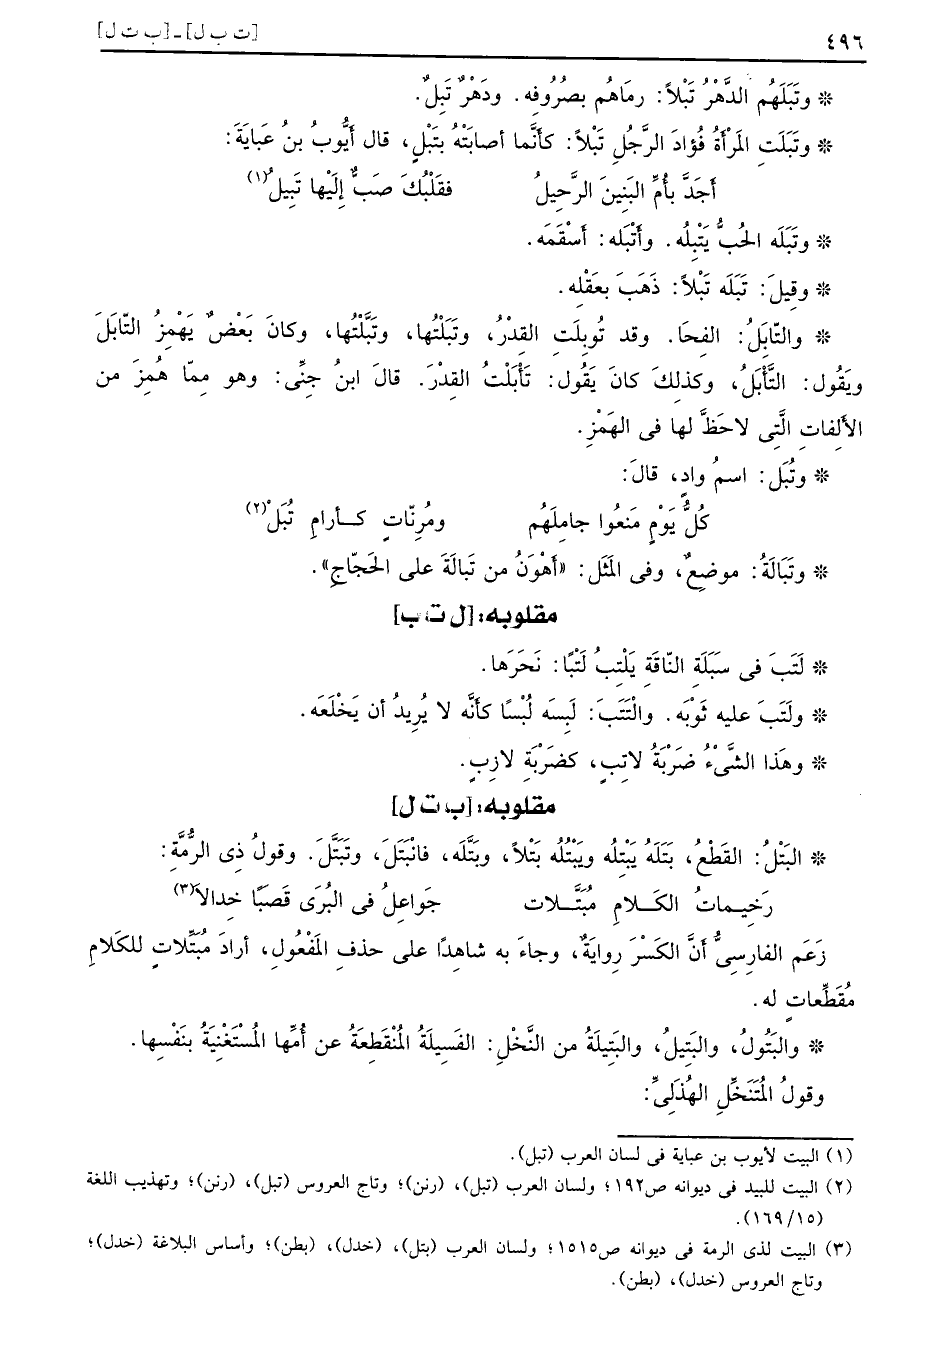 ٤٩٦ [ت ب ل] ـ [ب ت ل]
* وتَبَلَهُم الدَّهْرُ تَبْلاً: رماهُم بصُرُوفِه. ودَهْرٌ تَبِلٌ.
* وتَبَلَتِ المَرْأَةُ فُؤادَ الرَّجُلِ تَبْلاً: كأنَّما أصابَتْهُ بتَبْلٍ، قال أَيُّوبُ بنُ عَبايَةَ:
أجَدَّ بأُمِّ البَنِينَ الرَّحِيلُ فقَلْبُكَ صَبٌّ إلَيْها تَبِيلُ(١)
* وتَبَلَه الحُبُّ يَتْبِلُه. وأَتْبَله: أسْقَمَه.
* وقِيلَ: تَبَلَه تَبْلاً: ذَهَبَ بعَقْلِه.
* والتّابَلُ: الفِحَا. وقد تُوبِلَتِ القِدْرُ، وتَبَلْتُها، وتَبَّلْتُها، وكانَ بَعْضٌ يَهْمِزُ التّابَلَ
ويَقُول: التَّأْبَلُ، وكذلِكَ كانَ يَقُول: تَأْبَلْتُ القِدْرَ. قالَ ابنُ جِنِّى: وهو مِمّا هُمِزَ من
الألِفاتِ الَّتِى لاحَظَّ لها فى الهَمْزِ.
* وتُبَل: اسمُ وادٍ، قالَ:
كُلَّ يَوْمٍ مَنَعُوا جامِلَهُم ومُرِنّاتٍ كـأرامِ تُبَلْ(٢)
* وتَبَالَةُ: موضِعٌ، وفى المَثَل: «أهْوَنُ من تَبالَةَ على الحَجّاجِ».
مقلوبه: [ل ت ب]
* لَتَبَ فى سَبَلَةِ النّاقَةِ يَلْتِبُ لَتْبًا: نَحَرَها.
* ولَتَبَ عليه ثَوْبَه. والْتَتَبَ: لَبِسَه لُبْسًا كأنَّه لا يُرِيدُ أن يَخْلَعَه.
* وهَذا الشَّىْءُ ضَرْبَةُ لاتِبٍ، كضَرْبَةِ لازِبٍ.
مقلوبه: [ب ت ل]
* البَتْلُ: القَطْعُ، بَتَلَهُ يَبْتِلُه ويَبْتُلُه بَتْلاً، وبَتَّلَه، فانْبَتَلَ، وتَبَتَّلَ. وقولُ ذِى الرُّمَّةِ:
رَخِيـماتُ الكَـلامِ مُبَتَّـلات جَواعِلُ فى البُرَى قَصَبًا خِدالاَ(٣)
زَعَم الفارِسِىُّ أنَّ الكَسْرَ رِوايَةٌ، وجاءَ به شاهِدًا على حذفِ المَفْعُول، أرادَ مُبَتِّلاتٍ للكَلامِ
مُقَطِّعاتٍ له.
* والبَتُولُ، والبَتِيلُ، والبَتِيلَةُ من النَّخْلِ: الفَسِيلَةُ المُنْقَطِعَةُ عن أُمِّها المُسْتَغْنِيَةُ بنَفْسِها.
وقولُ المُتَنَخِّلِ الهُذَلِىِّ:
(١) البيت لأيوب بن عباية فى لسان العرب (تبل).
(٢) البيت للبيد فى ديوانه ص١٩٢؛ ولسان العرب (تبل)، (رنن)؛ وتاج العروس (تبل)، (رنن)؛ وتهذيب اللغة
(١٥/١٦٩).
(٣) البيت لذى الرمة فى ديوانه ص١٥١٥؛ ولسان العرب (بتل)، (خدل)، (بطن)؛ وأساس البلاغة (خدل)؛
وتاج العروس (خدل)، (بطن).